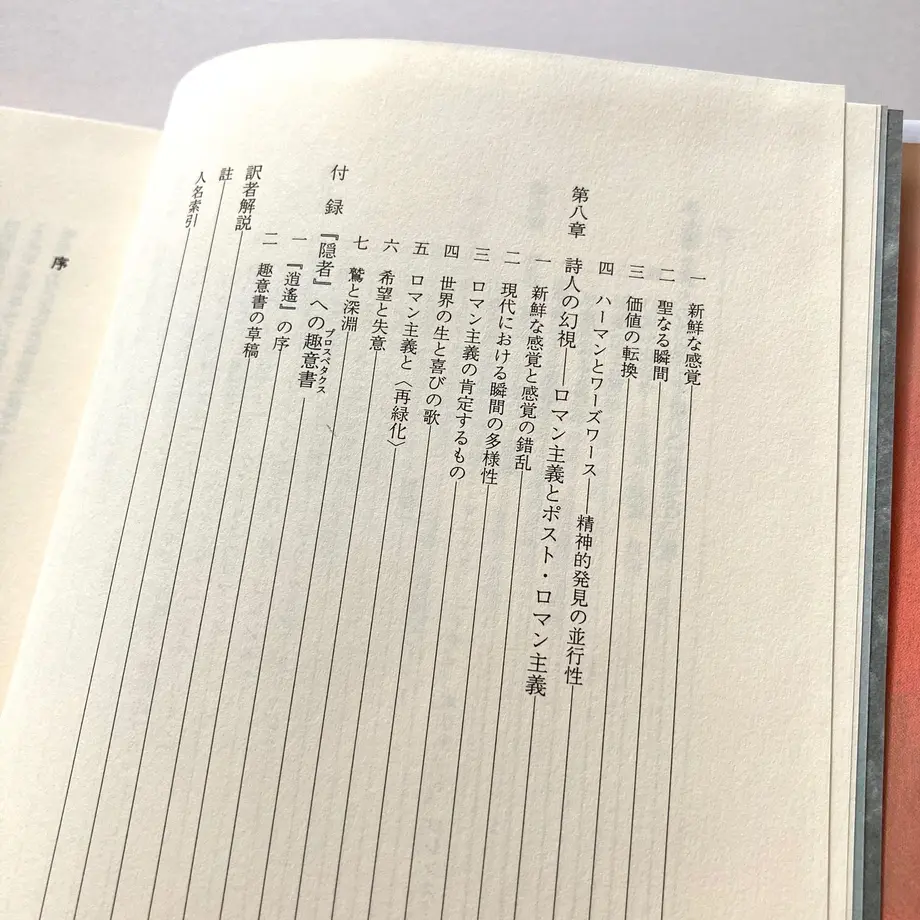 一 新鮮な感覚
二 聖なる瞬間
三 価値の転換
四 ハーマンとワーズワース――精神的発見の並行性
第八章 詩人の幻視――ロマン主義とポスト・ロマン主義
一 新鮮な感覚と感覚の錯乱
二 現代における瞬間の多様性
三 ロマン主義の肯定するもの
四 世界の生と喜びの歌
五 ロマン主義と〈再緑化〉
六 希望と失意
七 鷲と深淵
付録 『隠者』への趣意書
プロスペクタス
一 『逍遙』の序
二 趣意書の草稿
訳者解説
註
人名索引
序